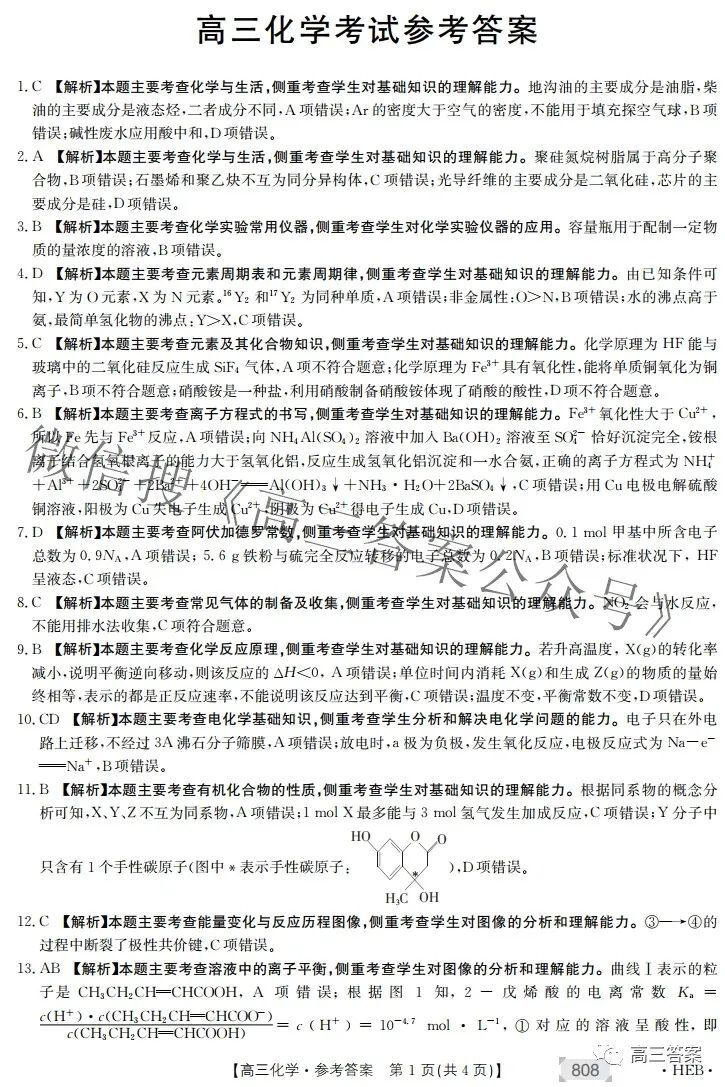 高三化学考试参考答案
1. C 【解析】本题主要考查化学与生活,侧重考查学生对基础知识的理解能力。地沟油的主要成分是油脂,柴
油的主要成分是液态烃,二者成分不同,A项错误;Ar的密度大于空气的密度,不能用于填充探空气球,B项
错误;碱性废水应用酸中和,D项错误。
2. A 【解析】本题主要考查化学与生活,侧重考查学生对基础知识的理解能力。聚硅氮烷树脂属于高分子聚
合物,B项错误;石墨烯和聚乙炔不互为同分异构体,C项错误;光导纤维的主要成分是二氧化硅,芯片的主
要成分是硅,D项错误。
3. B 【解析】本题主要考查化学实验常用仪器,侧重考查学生对化学实验仪器的应用。容量瓶用于配制一定物
质的量浓度的溶液,B项错误。
4. D 【解析】本题主要考查元素周期表和元素周期律,侧重考查学生对基础知识的理解能力。由已知条件可
知,Y为O元素,X为N元素。¹⁶Y₂和¹⁷Y₂为同种单质,A项错误;非金属性:O>N,B项错误;水的沸点高于
氨,最简单氢化物的沸点:Y>X,C项错误。
5. C 【解析】本题主要考查元素及其化合物知识,侧重考查学生对基础知识的理解能力。化学原理为HF能与
玻璃中的二氧化硅反应生成SiF₄气体,A项不符合题意;化学原理为Fe³⁺具有氧化性,能将单质铜氧化为铜
离子,B项不符合题意;硝酸铵是一种盐,利用硝酸制备硝酸铵体现了硝酸的酸性,D项不符合题意。
6. B 【解析】本题主要考查离子方程式的书写,侧重考查学生对基础知识的理解能力。Fe³⁺氧化性大于Cu²⁺,
所以Fe先与Fe³⁺反应,A项错误;向NH₄Al(SO₄)₂溶液中加入Ba(OH)₂溶液至SO₄²⁻恰好沉淀完全,铵根
离子结合氢氧根离子的能力大于氢氧化铝,反应生成氢氧化铝沉淀和一水合氨,正确的离子方程式为NH₄⁺
+Al³⁺+2SO₄²⁻+2Ba²⁺+4OH⁻══Al(OH)₃↓+NH₃·H₂O+2BaSO₄↓,C项错误;用Cu电极电解硫酸
铜溶液,阳极为Cu失电子生成Cu²⁺,阴极为Cu²⁺得电子生成Cu,D项错误。
7. D 【解析】本题主要考查阿伏加德罗常数,侧重考查学生对基础知识的理解能力。0.1 mol甲基中所含电子
总数为0.9Nₐ,A项错误;5.6 g铁粉与硫完全反应转移的电子总数为0.2Nₐ,B项错误;标准状况下,HF
呈液态,C项错误。
8. C 【解析】本题主要考查常见气体的制备及收集,侧重考查学生对基础知识的理解能力。NO₂会与水反应,
不能用排水法收集,C项符合题意。
9. B 【解析】本题主要考查化学反应原理,侧重考查学生对基础知识的理解能力。若升高温度,X(g)的转化率
减小,说明平衡逆向移动,则该反应的ΔH<0,A项错误;单位时间内消耗X(g)和生成Z(g)的物质的量始
终相等,表示的都是正反应速率,不能说明该反应达到平衡,C项错误;温度不变,平衡常数不变,D项错误。
10. CD 【解析】本题主要考查电化学基础知识,侧重考查学生分析和解决电化学问题的能力。电子只在外电
路上迁移,不经过3A沸石分子筛膜,A项错误;放电时,a极为负极,发生氧化反应,电极反应式为Na－e⁻
══Na⁺,B项错误。
11. B 【解析】本题主要考查有机化合物的性质,侧重考查学生对基础知识的理解能力。根据同系物的概念分
析可知,X、Y、Z不互为同系物,A项错误;1 mol X最多能与3 mol氢气发生加成反应,C项错误;Y分子中
HO O O
只含有1个手性碳原子(图中*表示手性碳原子: * ),D项错误。
H₃C OH
12. C 【解析】本题主要考查能量变化与反应历程图像,侧重考查学生对图像的分析和理解能力。③→④的
过程中断裂了极性共价键,C项错误。
13. AB 【解析】本题主要考查溶液中的离子平衡,侧重考查学生对图像的分析和理解能力。曲线Ⅰ表示的粒
子是CH₃CH₂CH══CHCOOH,A项错误;根据图1知,2－戊烯酸的电离常数Kₐ=
c(H⁺)·c(CH₃CH₂CH══CHCOO⁻)/c(CH₃CH₂CH══CHCOOH)=c(H⁺)=10⁻⁴·⁷ mol·L⁻¹,①对应的溶液呈酸性,即
【高三化学·参考答案 第1页(共4页)】 808 ·HEB·
微信搜《高三答案公众号》
高三答案